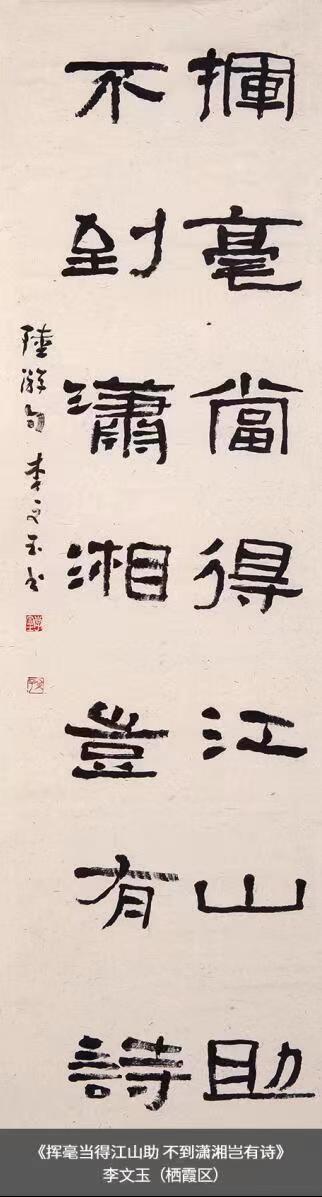 揮毫當得江山助
不到瀟湘豈有詩
陸游句 李文玉书
《挥毫当得江山助 不到潇湘岂有诗》
李文玉（栖霞区）